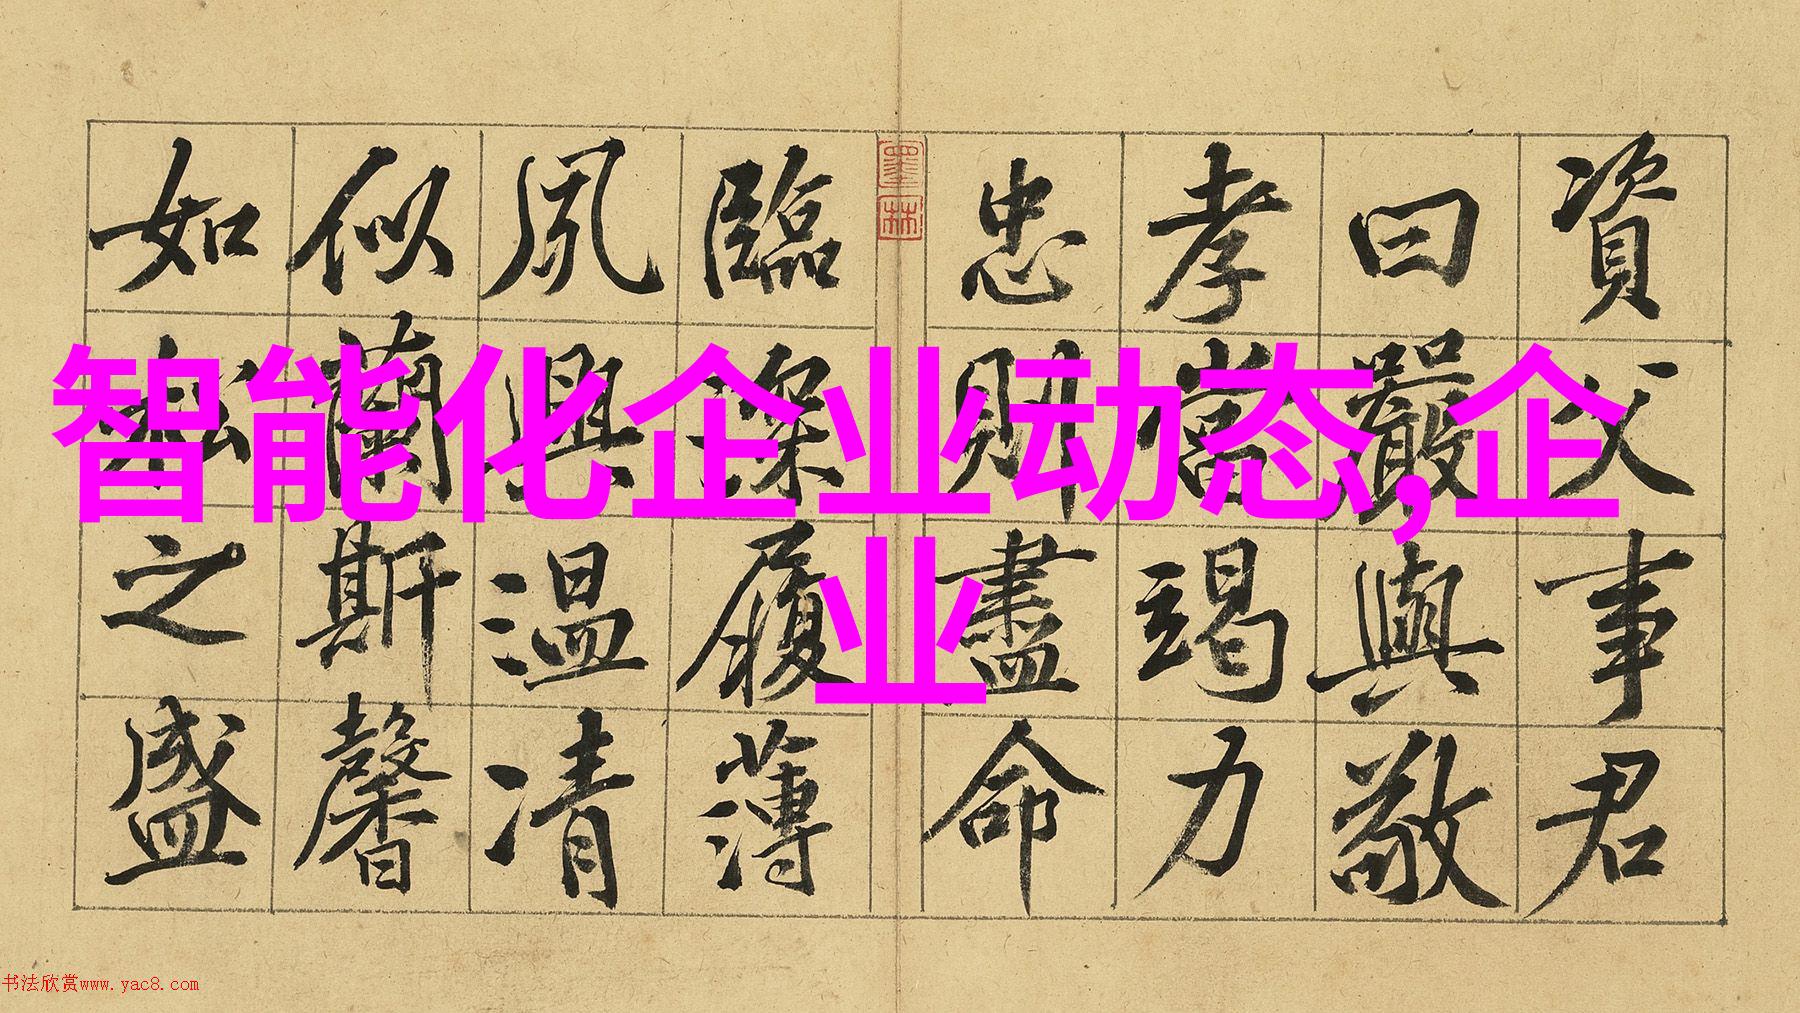 資父事君
曰嚴與敬
孝當竭力
忠則盡命
臨深履薄
夙興温凊
似蘭斯馨
如松之盛
墨林
智能化企业动态,企
业
书法欣赏www.yac8.com